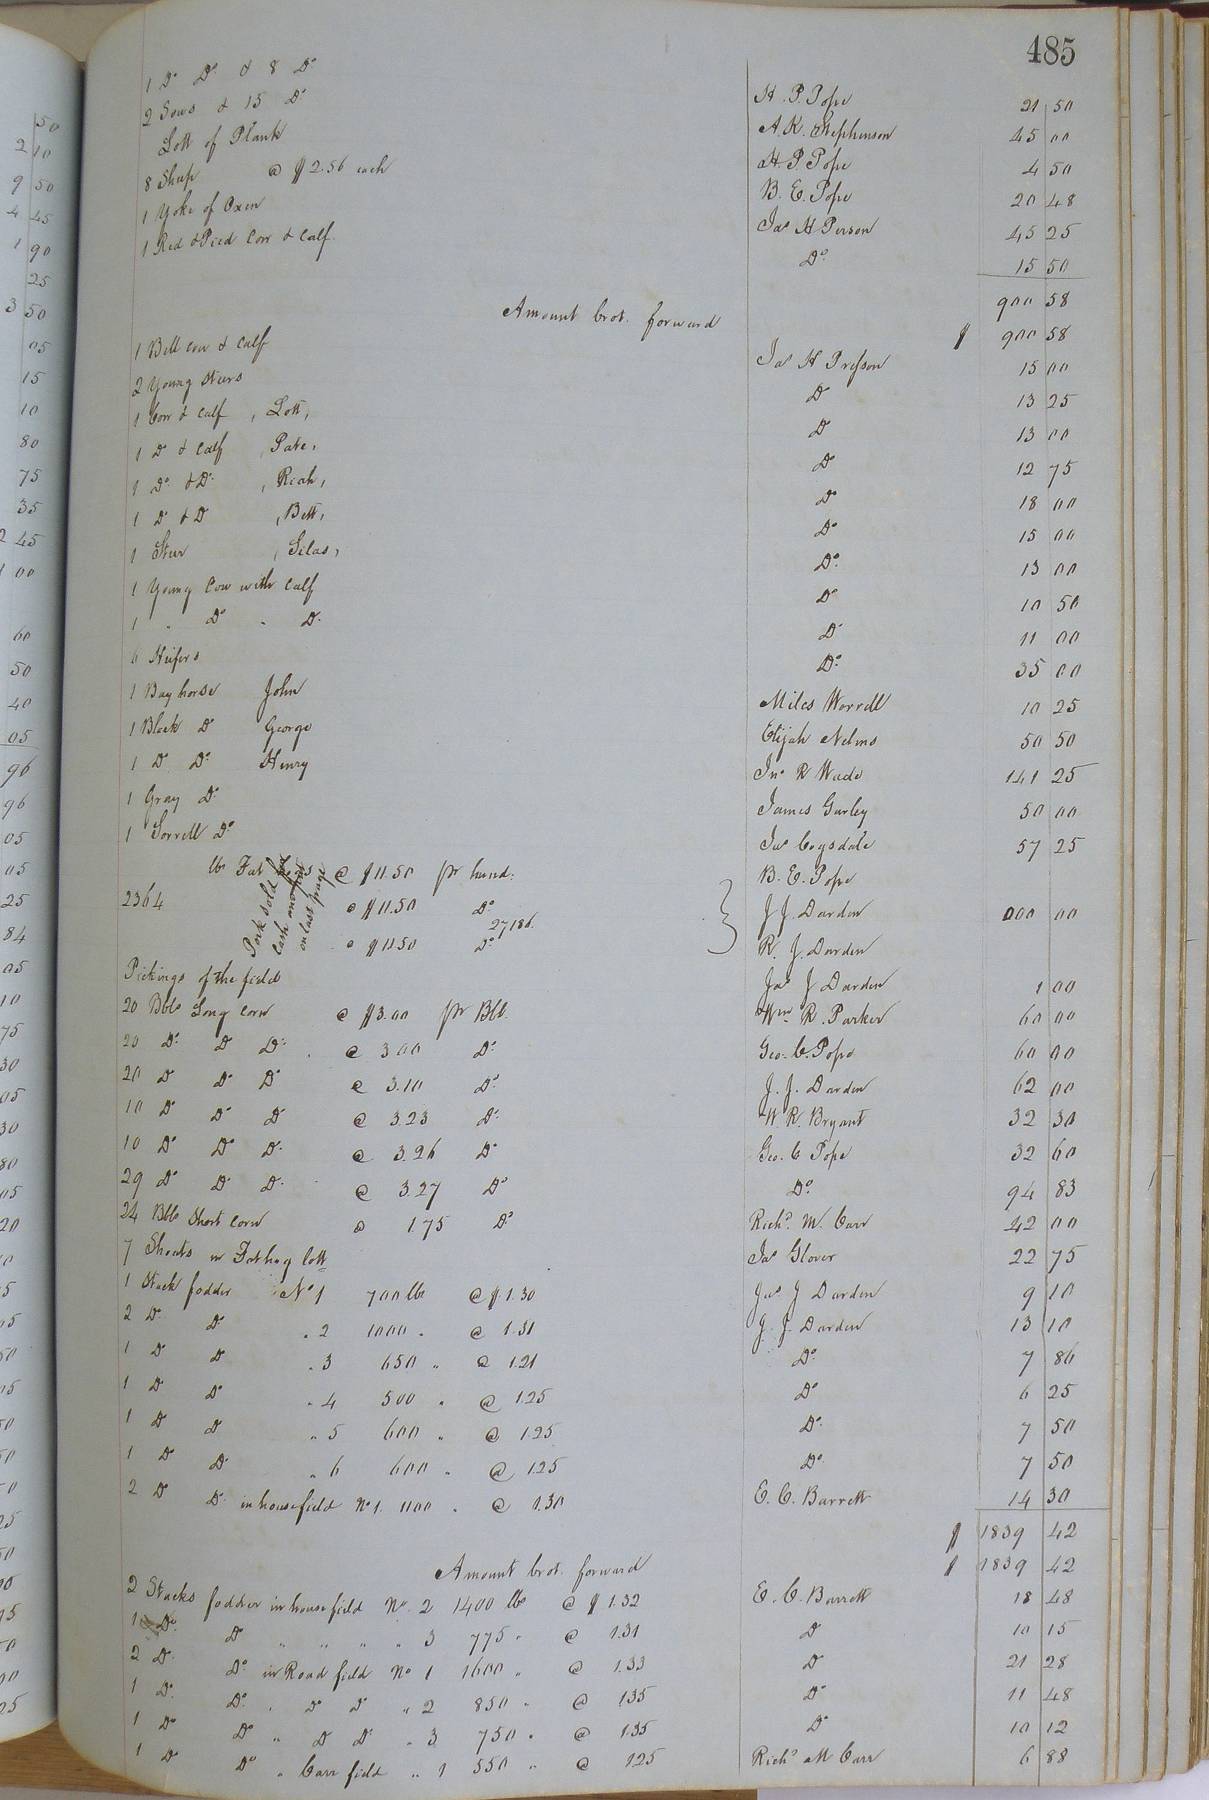 485
1 Do Do & 8 Do H. P. Pope 21 50
2 Sows & 15 Do A. K. Stephenson 45 00
Lott of Plank H. P. Pope 4 50
8 Sheep @ $2.56 each B. E. Pope 20 48
1 Yoke of Oxen Jas H Person 45 25
1 Red & Pied Cow & Calf Do 15 50
900 58
Amount brot. forward $ 900 58
1 Bell cow & calf Jas H Presson 15 00
2 Young Steers Do 13 25
1 Cow & calf , Lott, Do 13 00
1 Do & calf , Pate, Do 12 75
1 Do & Do , Reah, Do 18 00
1 Do & Do , Bett, Do 15 00
1 Steer , Silas, Do 13 00
1 Young Cow with Calf Do 10 50
1 " Do " Do Do 11 00
6 Heifers Do 35 00
1 Bay horse John Miles Worrell 10 25
1 Black Do George Elijah Nelms 50 50
1 Do Do Henry Jno R Wade 141 25
1 Gray Do James Gurley 50 00
1 Sorrell Do Jas Cogsdale 57 25
lbs Fat Hogs @ $11.50 pr hund. B. E. Pope
2364 @ $11.50 Do 27186. J. J. Darden 000 00
@ $11.50 Do R. J. Darden
Pork sold for
Cash
on last page
Pickings of the field Jas J Darden 1 00
20 Bbls Long corn @ $3.00 pr Bbl. Wm R. Parker 60 00
20 Do Do Do @ 3.00 Do Geo. C. Pope 60 00
20 Do Do Do @ 3.10 Do J. J. Darden 62 00
10 Do Do Do @ 3.23 Do W. R. Bryant 32 30
10 Do Do Do @ 3.26 Do Geo. C Pope 32 60
29 Do Do Do @ 3.27 Do Do 94 83
24 Bbls Short corn @ 1.75 Do Richd. M. Carr 42 00
7 Shoats in Fathog lott Jas Glover 22 75
1 Stack fodder No 1 700 lbs @ $1.30 Jas J Darden 9 10
2 Do Do " 2 1000 " @ 1.31 J. J. Darden 13 10
1 Do Do " 3 650 " @ 1.21 Do 7 86
1 Do Do " 4 500 " @ 1.25 Do 6 25
1 Do Do " 5 600 " @ 1.25 Do 7 50
1 Do Do " 6 600 " @ 1.25 Do 7 50
2 Do Do in house field No 1. 1100 " @ 1.30 E. C. Barrett 14 30
$ 1839 42
Amount brot. forward $ 1839 42
2 Stacks fodder in house field No. 2 1400 lbs @ $1.32 E. C. Barrett 18 48
1 Do Do " " " " 3 775 " @ 1.31 Do 10 15
2 Do Do in Road field No 1 1600 " @ 1.33 Do 21 28
1 Do Do " Do Do " 2 850 " @ 1.35 Do 11 48
1 Do Do " Do Do " 3 750 " @ 1.35 Do 10 12
1 Do Do " Carr field " 1 550 " @ 1.25 Richd M Carr 6 88